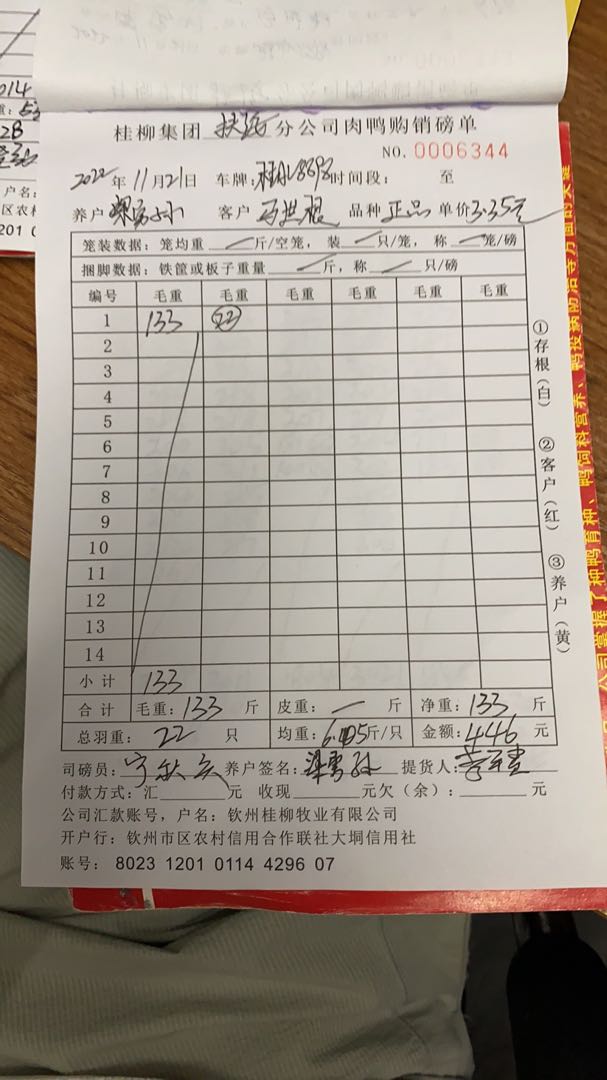 桂柳集团 扶绥 分公司肉鸭购销磅单
NO. 0006344
2022年 11月21日 车牌: 时间段: 至
养户 客户 品种 正品 单价 3.35元
笼装数据: 笼均重 斤/空笼, 装 只/笼, 称 笼/磅
捆脚数据: 铁筐或板子重量 斤, 称 只/磅
编号 毛重 毛重 毛重 毛重 毛重 毛重
1 133 22
2
3
4
5
6
7
8
9
10
11
12
13
14
小计 133
合计 毛重: 133 斤 皮重: 斤 净重: 133 斤
总羽重: 22 只 均重: 斤/只 金额: 446 元
司磅员: 养户签名: 提货人:
付款方式: 汇 元 收现 元欠(余): 元
公司汇款账号, 户名: 钦州桂柳牧业有限公司
开户行: 钦州市区农村信用合作联社大垌信用社
账号: 8023 1201 0114 4296 07
①存根(白)
②客户(红)
③养户(黄)